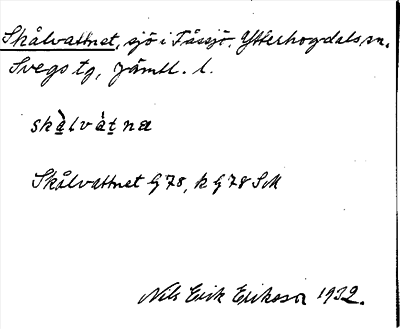 Skålvattnet, sjö i Fåssjö. Ytterhogdals sn.
Svegs tg, Jämtl. l.
skålvàtna
Skålvattnet G 78, k G 78 SM
Nils Erik Eriksson 1932.